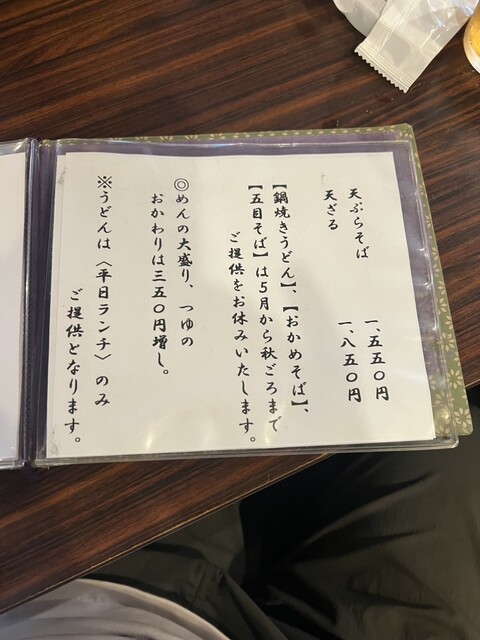 天ぷらそば 一、五五〇円
天ざる 一、八五〇円
【鍋焼きうどん】、【おかめそば】、
【五目そば】は5月から秋ごろまで
ご提供をお休みいたします。
◎めんの大盛り、つゆの
おかわりは三五〇円増し。
※うどんは〈平日ランチ〉のみ
ご提供となります。